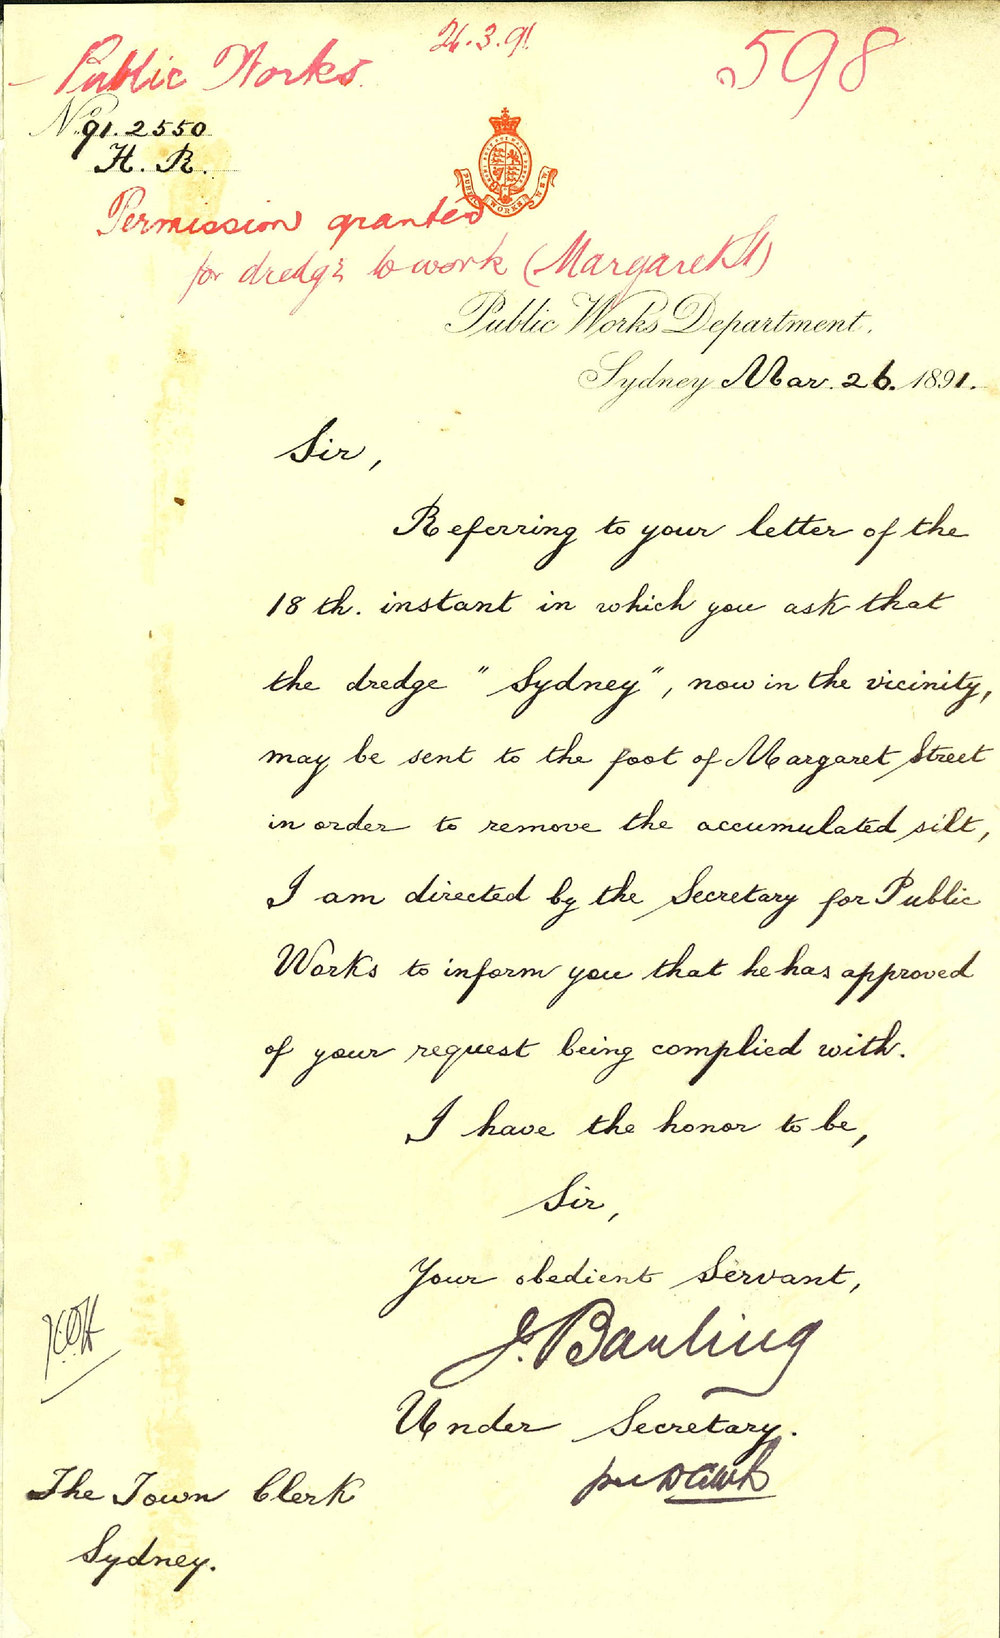 26.3.91
598
Public Works.
No. 91.2550
H. R.
PUBLIC WORKS N.S.W.
Permission granted
for dredg'g to work (Margaret St)
Public Works Department.
Sydney Mar. 26. 1891.
Sir,
Referring to your letter of the
18th. instant in which you ask that
the dredge "Sydney", now in the vicinity,
may be sent to the foot of Margaret Street
in order to remove the accumulated silt,
I am directed by the Secretary for Public
Works to inform you that he has approved
of your request being complied with.
I have the honor to be,
Sir,
Your obedient Servant,
J. Barling
Under Secretary.
The Town Clerk
Sydney.